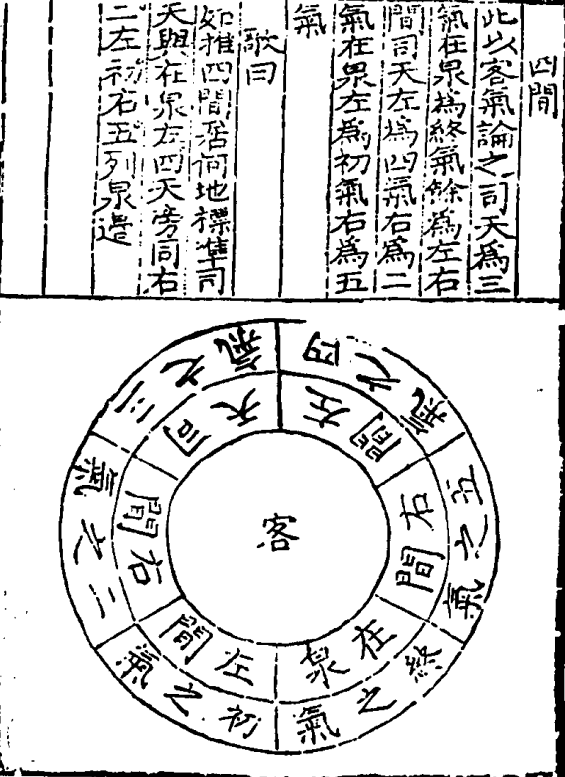 四間
此以客氣論之司天爲三
氣在泉爲終氣餘爲左右
間司天左爲四氣右爲二
氣在泉左爲初氣右爲五
氣
歌曰
如推四間居何地標準司
天與在泉左四天旁同右
二左初右五列泉邉
客
司天
左間
右間
在泉
左間
右間
三之氣
四之氣
五之氣
終之氣
初之氣
二之氣